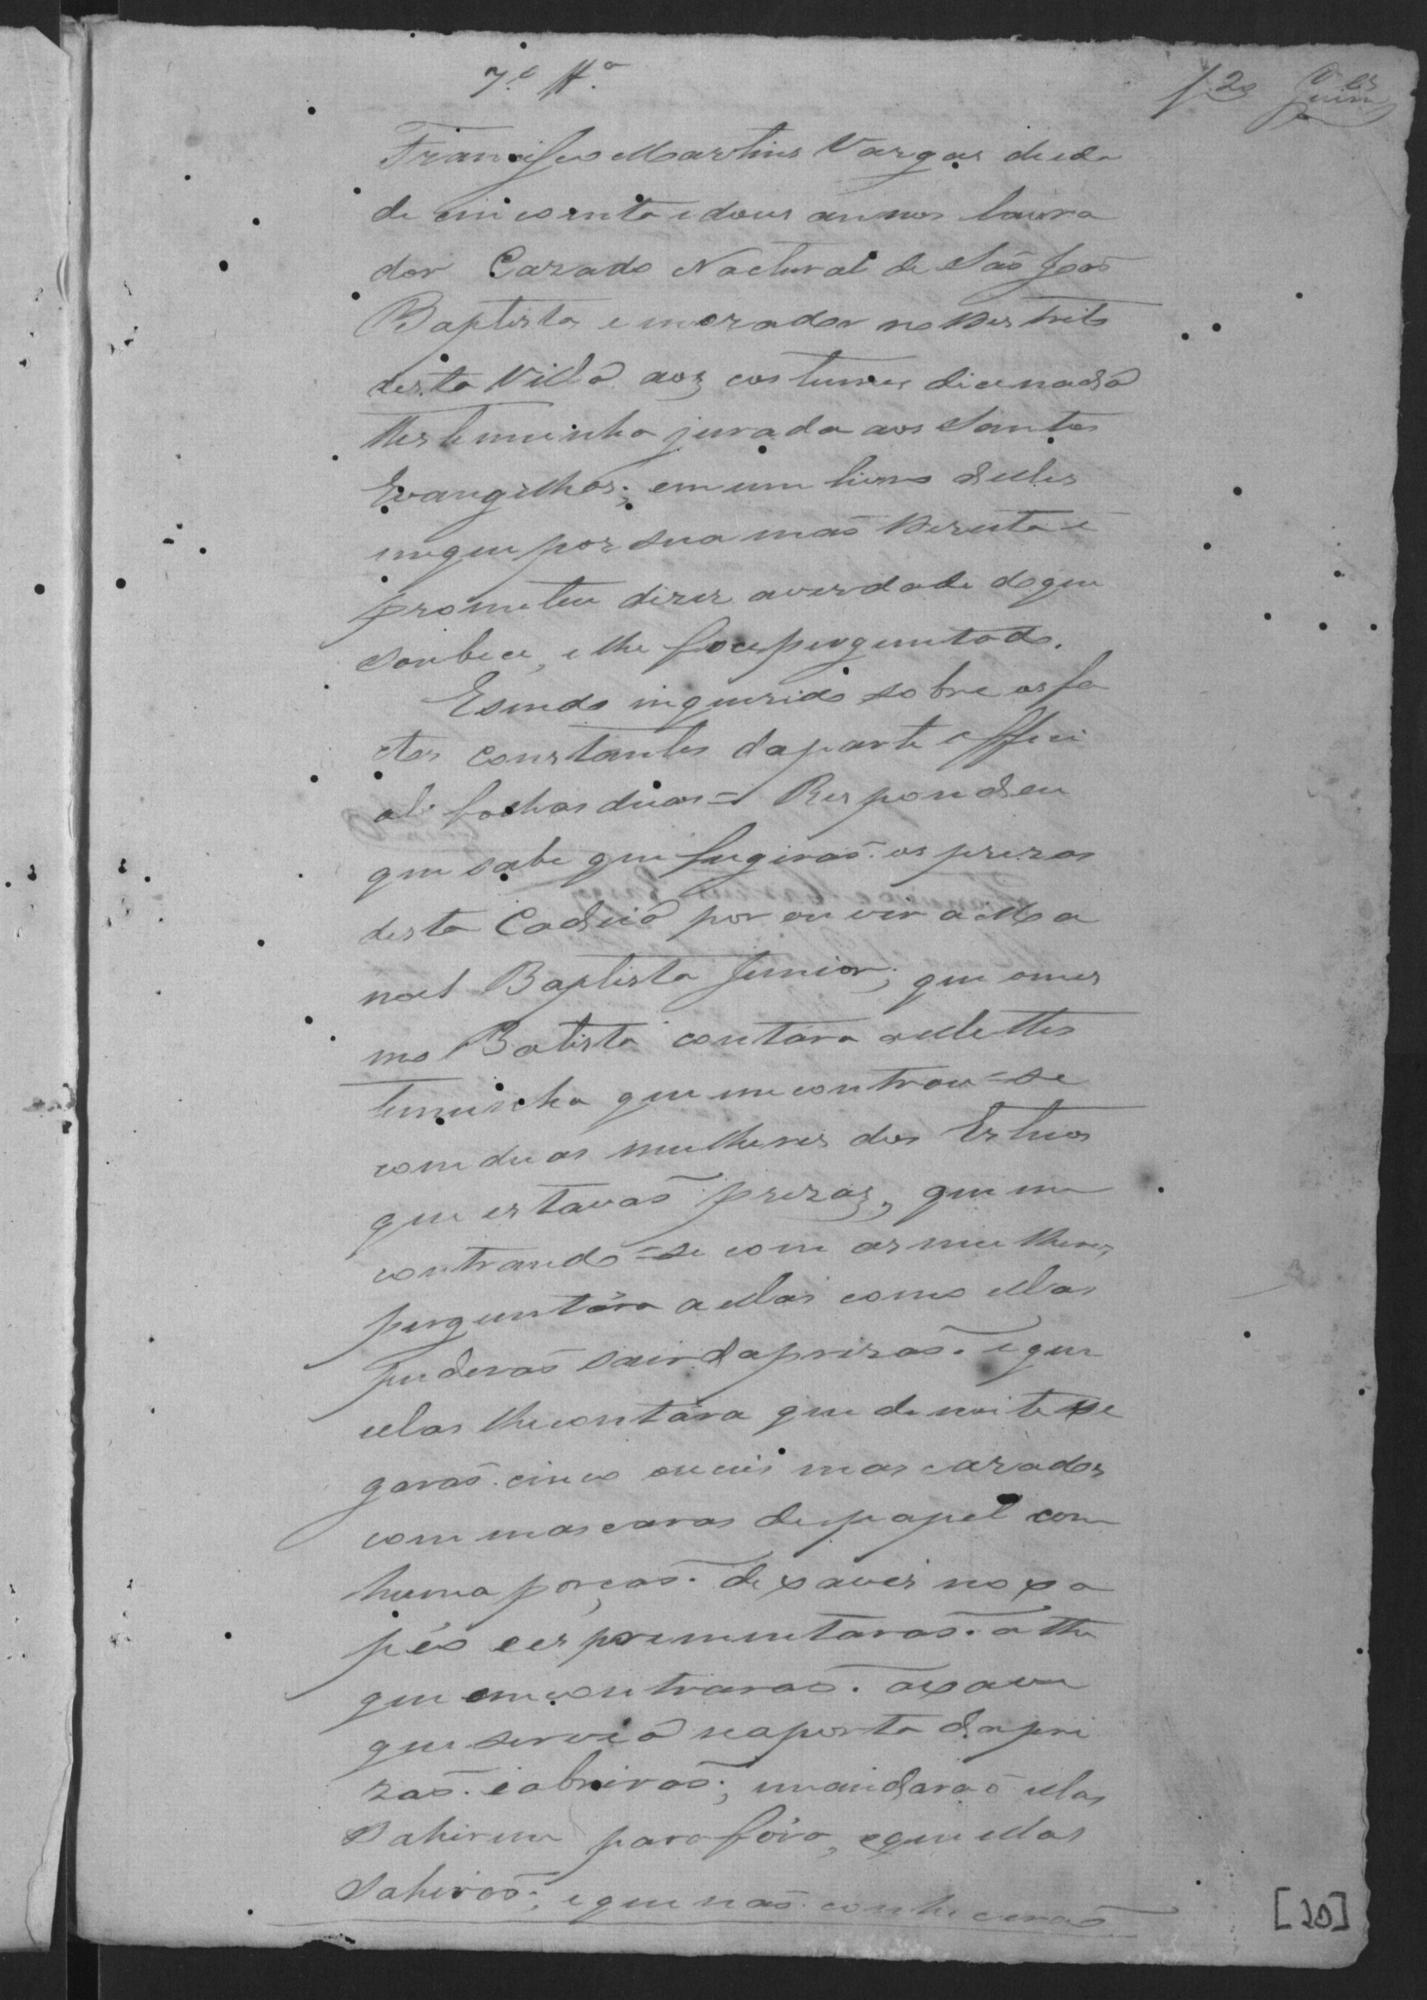 7.ª tt.ª
f. 20
Francisco Martins Vargas de eda
de cincoenta e dous annos lavra
dor Cazado Natural de São João
Baptista e morador no Destrito
desta Villa aos costumes dice nada
Testeminha jurada aos Santos
Evangelhos; em um livro delles
em que pos sua mão Dereita e
prometeu dizer a verdade do que
soubece, e lhe foce perguntado.
E sendo inquerido sobre os fa
ctos constantes da parte offici
al folhas duas = Respondeu
que sabe que fugirão os prezos
desta Cadeia por ouvir a Ma
noel Baptista Junior; que o mes
mo Batista contara a elle Tes
teminha que encontrou-se
com duas mulheres dos
que estavão prezas, que en
contrando-se com as mulheres
perguntára a ellas como ellas
puderão sair da prizão. e que
ellas lhe contára que de noite xe
garão cinco ou ceis mascarados
com mascaras de papel com
huma porção de xaves no xa
péo e esprementarão. a the
que encontrarão. a xave
que servio na porta da pri
zão. e abrirão; mandarão ellas
Sahirem para fóra, e que ellas
Sahirão; e que não conhecerão
[20]